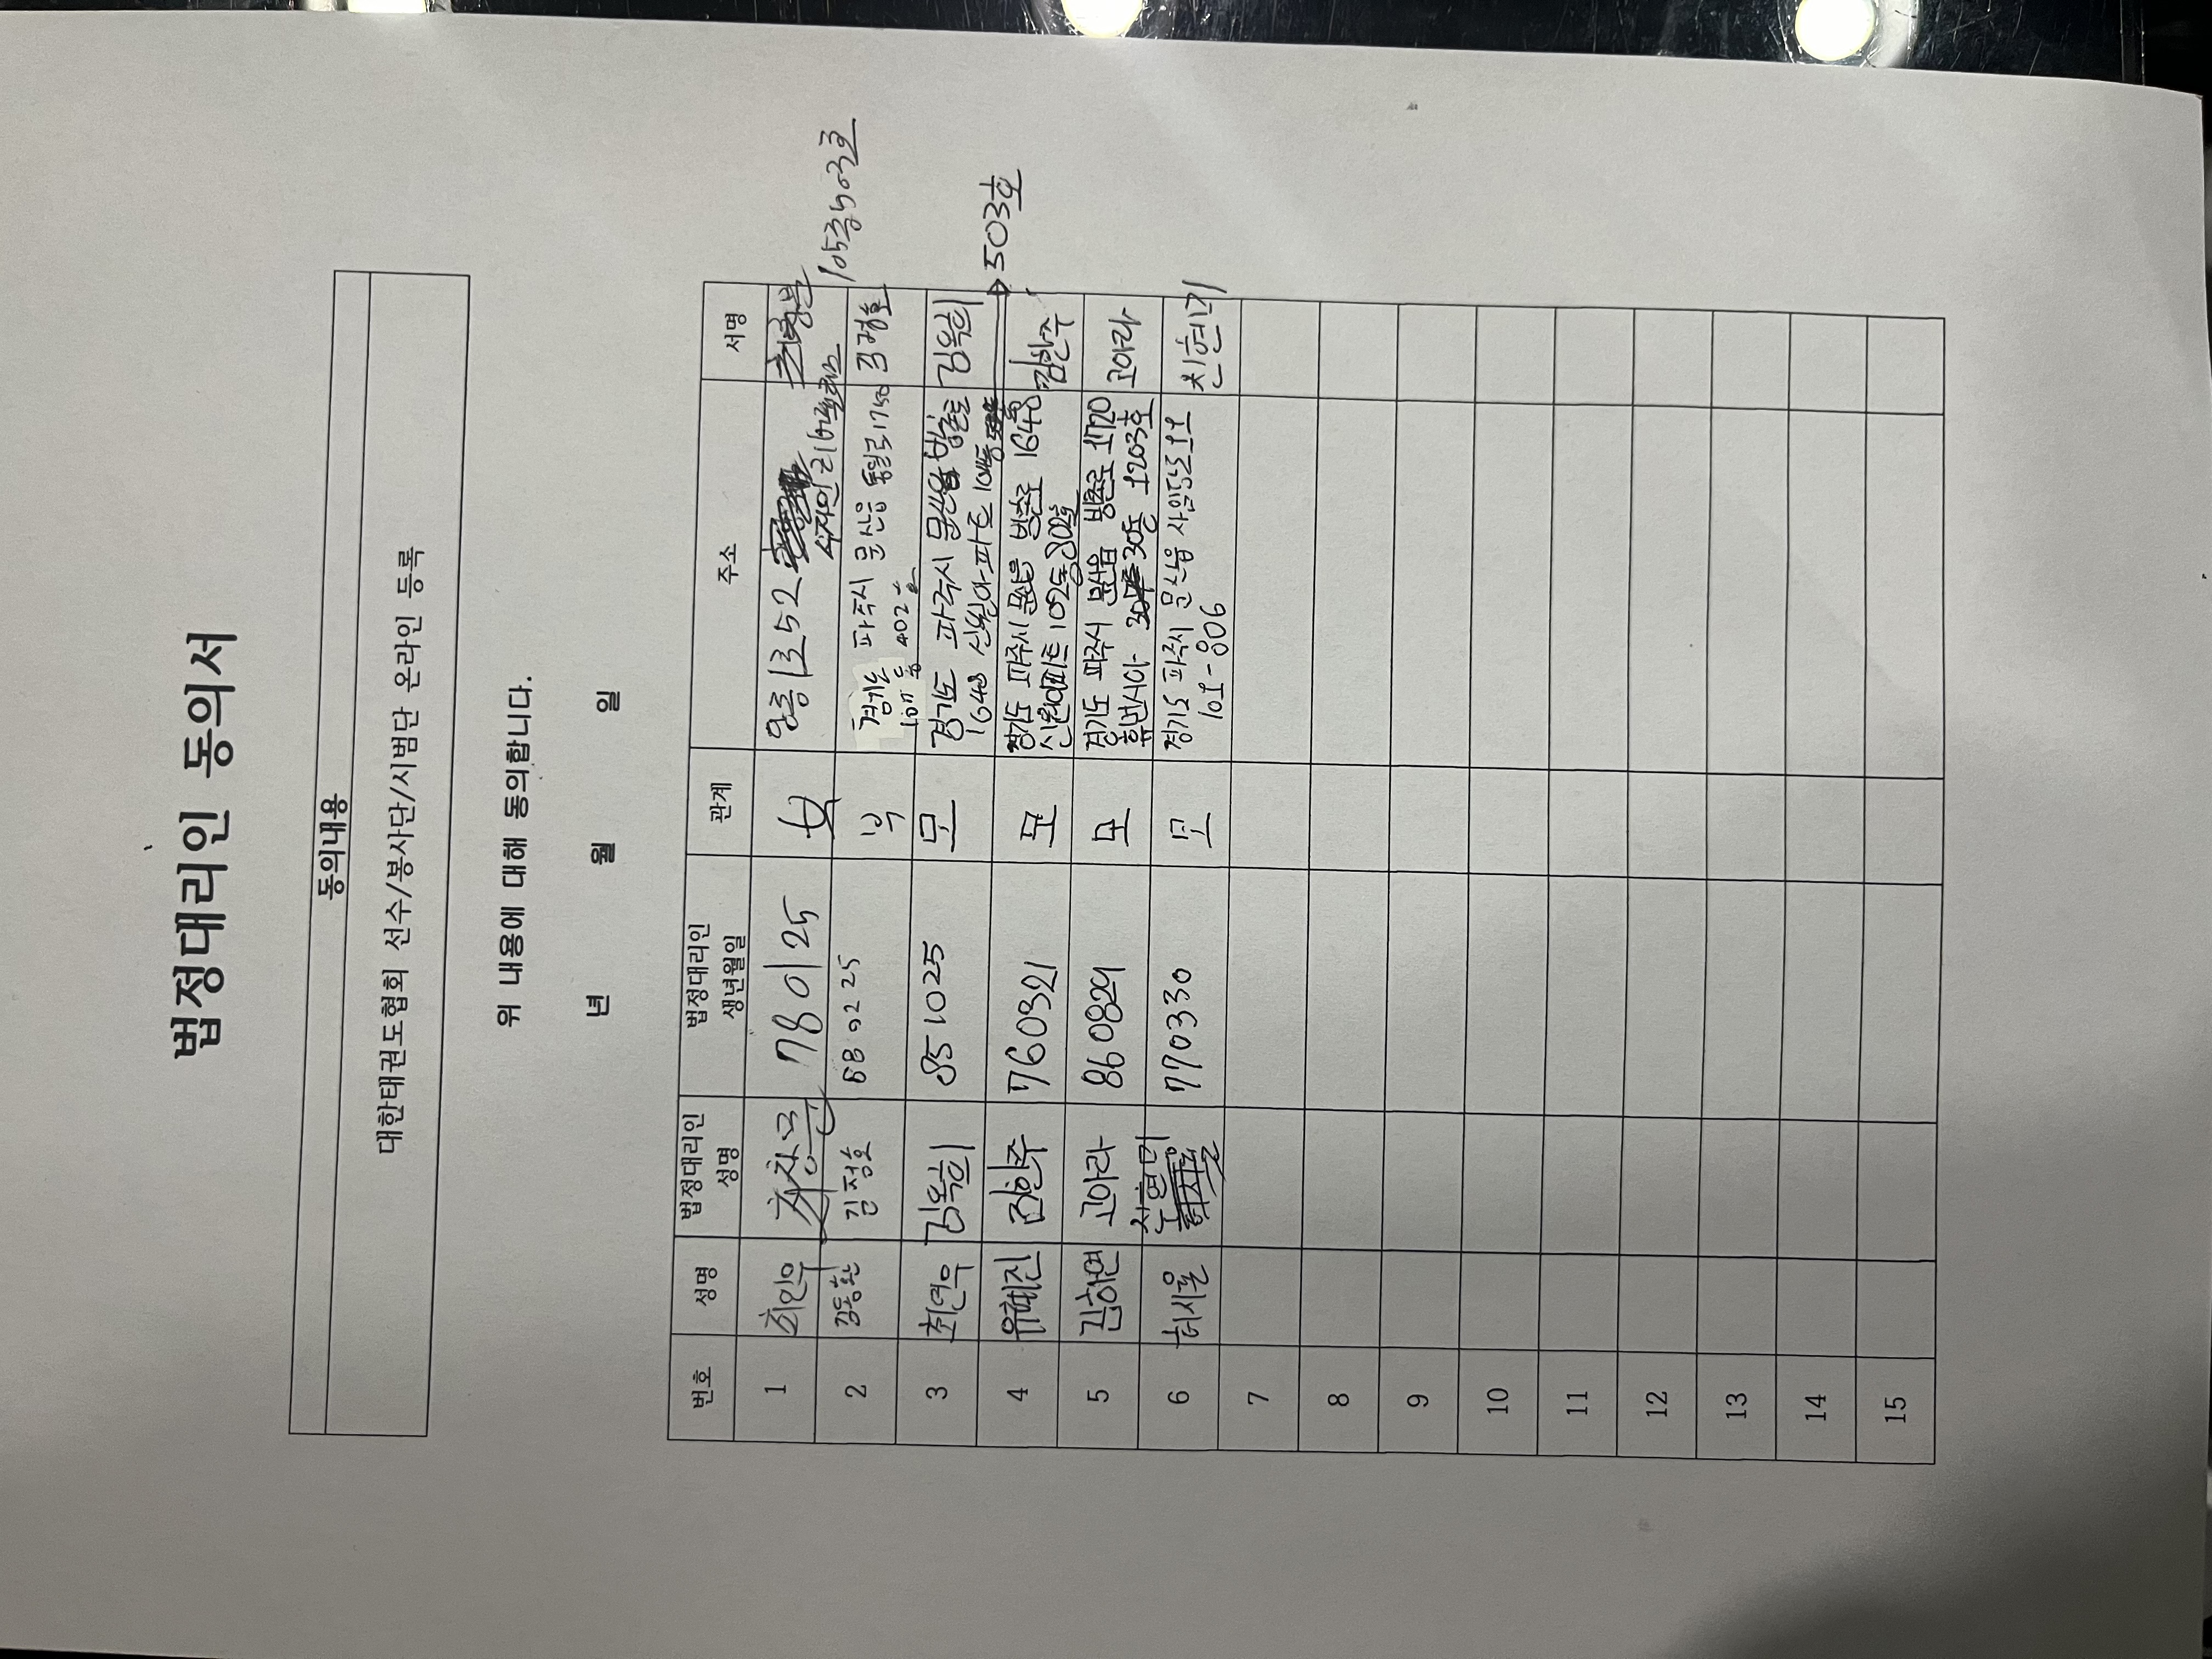 법정대리인 동의서
동의내용
대한태권도협회 선수/봉사단/시범단 온라인 등록
위 내용에 대해 동의합니다.
년 월 일
번호 성명 법정대리인 성명 법정대리인 생년월일 관계 주소 서명
1 최인우 780125 1352
105동503호
2 김동환 김정호 680225 부 경기도 파주시 문산읍 통일로1750
402호
3 최연우 김옥희 851025 모 경기도 파주시 문산읍 방촌로 김옥희
1648 신원아파트 104동
→503호
4 유혜진 김한주 760321 모 경기도 파주시 문산읍 방촌로 1648 김한주
신원아파트 102동802호
5 김하연 고아라 860829 모 경기도 파주시 문산읍 방촌로 1720 고아라
휴먼시아 305동 1203호
6 허시율 770330 모 경기도 파주시 문산읍 사임당로 11
101-806
7
8
9
10
11
12
13
14
15